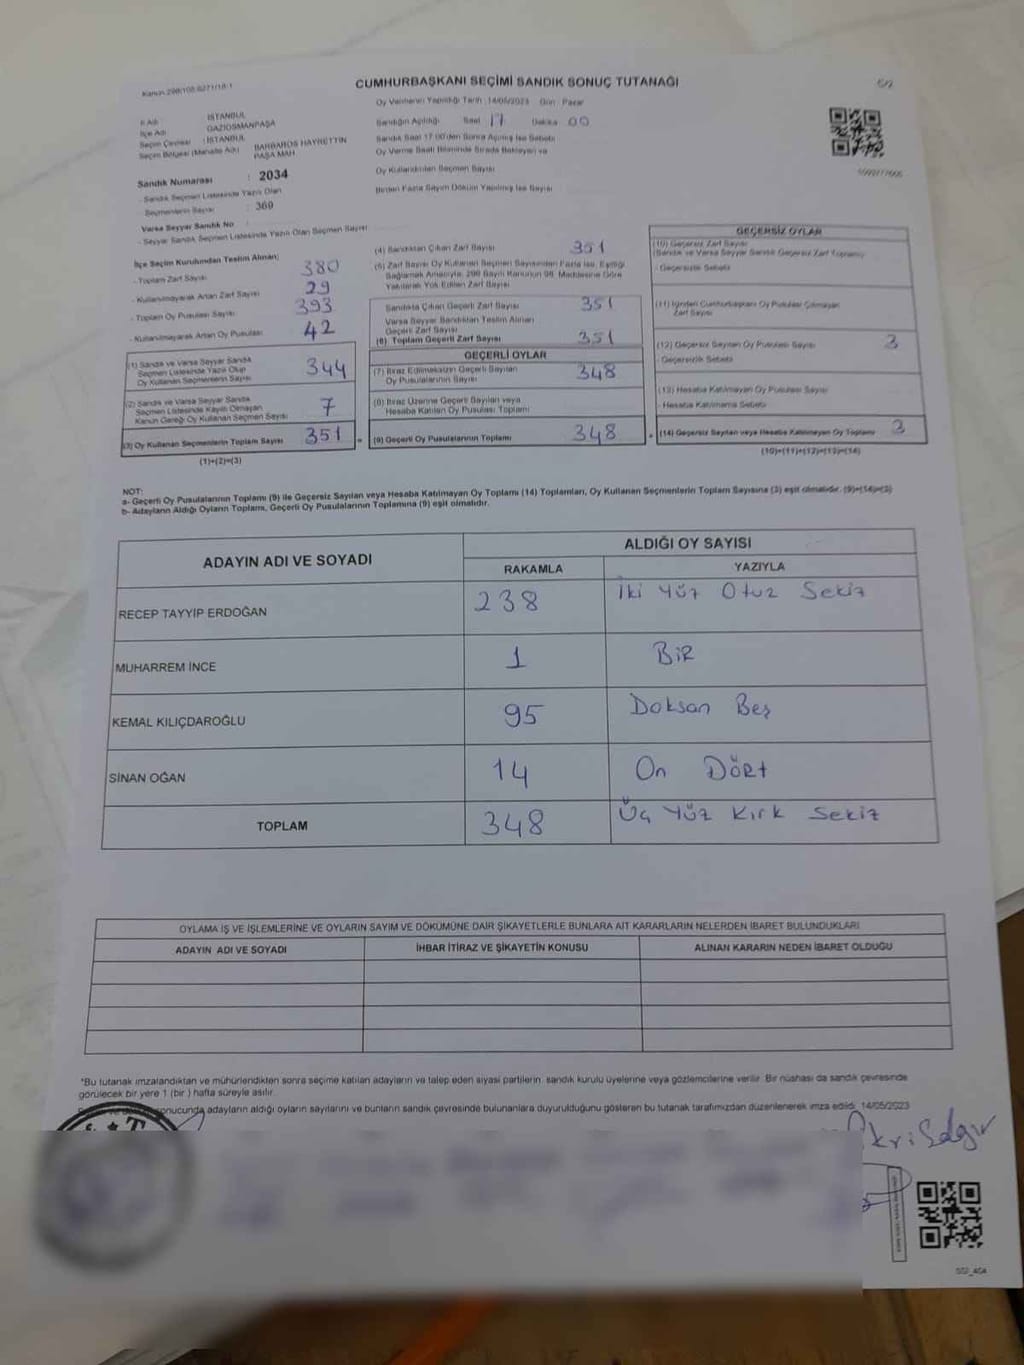 Kanun 298/105 6271/18-1
CUMHURBAŞKANI SEÇİMİ SANDIK SONUÇ TUTANAĞI
Oy Vermenin Yapıldığı Tarih :14/05/2023 Gün : Pazar
İl Adı : İSTANBUL
İlçe Adı : GAZİOSMANPAŞA
Seçim Çevresi : İSTANBUL
Seçim Bölgesi (Mahalle Adı) : BARBAROS HAYRETTİN PAŞA MAH.
Sandığın Açıldığı Saat 17 Dakika 00
Sandık Saat 17.00'den Sonra Açılmış İse Sebebi
Oy Verme Saati Bitiminde Sırada Bekleyen ve
Oy Kullandırılan Seçmen Sayısı
Birden Fazla Sayım Döküm Yapılmış İse Sayısı
Sandık Numarası : 2034
- Sandık Seçmen Listesinde Yazılı Olan
Seçmenlerin Sayısı : 369
Varsa Seyyar Sandık No
- Seyyar Sandık Seçmen Listesinde Yazılı Olan Seçmen Sayısı
İlçe Seçim Kurulundan Teslim Alınan;
- Toplam Zarf Sayısı 380
- Kullanılmayarak Artan Zarf Sayısı 29
- Toplam Oy Pusulası Sayısı 393
- Kullanılmayarak Artan Oy Pusulası 42
(1) Sandık ve Varsa Seyyar Sandık
Seçmen Listesinde Yazılı Olup
Oy Kullanan Seçmenlerin Sayısı 344
(2) Sandık ve Varsa Seyyar Sandık
Seçmen Listesinde Kayıtlı Olmayan
Kanun Gereği Oy Kullanan Seçmen Sayısı 7
(3) Oy Kullanan Seçmenlerin Toplam Sayısı 351
(1)+(2)=(3)
(4) Sandıktan Çıkan Zarf Sayısı 351
(5) Zarf Sayısı Oy Kullanan Seçmen Sayısından Fazla İse, Eşitliği
Sağlamak Amacıyla, 298 Sayılı Kanunun 98. Maddesine Göre
Yakılarak Yok Edilen Zarf Sayısı
Sandıkta Çıkan Geçerli Zarf Sayısı 351
Varsa Seyyar Sandıktan Teslim Alınan
Geçerli Zarf Sayısı
(6) Toplam Geçerli Zarf Sayısı 351
GEÇERLİ OYLAR
(7) İtiraz Edilmeksizin Geçerli Sayılan
Oy Pusulalarının Sayısı 348
(8) İtiraz Üzerine Geçerli Sayılan veya
Hesaba Katılan Oy Pusulası Toplamı
(9) Geçerli Oy Pusulalarının Toplamı 348
GEÇERSİZ OYLAR
(10) Geçersiz Zarf Sayısı
(Sandık ve Varsa Seyyar Sandık Geçersiz Zarf Toplamı)
- Geçersizlik Sebebi
(11) İçinden Cumhurbaşkanı Oy Pusulası Çıkmayan
Zarf Sayısı
(12) Geçersiz Sayılan Oy Pusulası Sayısı 3
- Geçersizlik Sebebi
(13) Hesaba Katılmayan Oy Pusulası Sayısı
- Hesaba Katılmama Sebebi
(14) Geçersiz Sayılan veya Hesaba Katılmayan Oy Toplamı 3
(10)+(11)+(12)+(13)=(14)
NOT:
a- Geçerli Oy Pusulalarının Toplamı (9) ile Geçersiz Sayılan veya Hesaba Katılmayan Oy Toplamı (14) Toplamları, Oy Kullanan Seçmenlerin Toplam Sayısına (3) eşit olmalıdır. (9)+(14)=(3)
b- Adayların Aldığı Oyların Toplamı, Geçerli Oy Pusulalarının Toplamına (9) eşit olmalıdır.
ADAYIN ADI VE SOYADI ALDIĞI OY SAYISI
RAKAMLA YAZIYLA
RECEP TAYYİP ERDOĞAN 238 İki Yüz Otuz Sekiz
MUHARREM İNCE 1 BİR
KEMAL KILIÇDAROĞLU 95 Doksan Beş
SİNAN OĞAN 14 On Dört
TOPLAM 348 Üç Yüz Kırk Sekiz
OYLAMA İŞ VE İŞLEMLERİNE VE OYLARIN SAYIM VE DÖKÜMÜNE DAİR ŞİKAYETLERLE BUNLARA AİT KARARLARIN NELERDEN İBARET BULUNDUKLARI
ADAYIN ADI VE SOYADI İHBAR İTİRAZ VE ŞİKAYETİN KONUSU ALINAN KARARIN NEDEN İBARET OLDUĞU
*Bu tutanak imzalandıktan ve mühürlendikten sonra seçime katılan adayların ve talep eden siyasi partilerin sandık kurulu üyelerine veya gözlemcilerine verilir. Bir nüshası da sandık çevresinde
görülecek bir yere 1 (bir ) hafta süreyle asılır.
sonucunda adayların aldığı oyların sayılarını ve bunların sandık çevresinde bulunanlara duyurulduğunu gösteren bu tutanak tarafımızdan düzenlenerek imza edildi. 14/05/2023